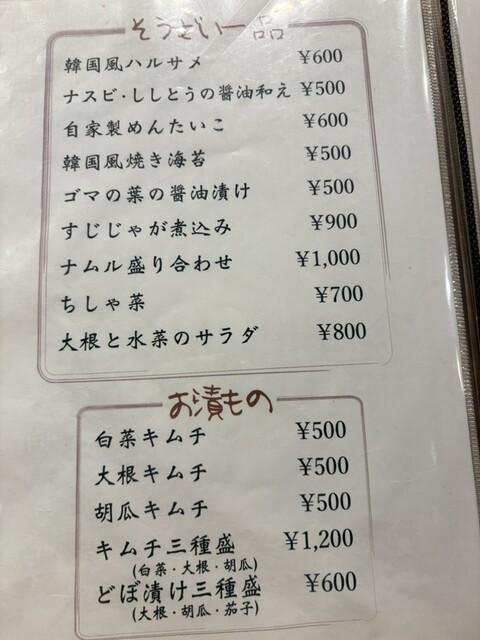 そうざい一品
韓国風ハルサメ ¥600
ナスビ・ししとうの醤油和え ¥500
自家製めんたいこ ¥600
韓国風焼き海苔 ¥500
ゴマの葉の醤油漬け ¥500
すじじゃが煮込み ¥900
ナムル盛り合わせ ¥1,000
ちしゃ菜 ¥700
大根と水菜のサラダ ¥800
お漬もの
白菜キムチ ¥500
大根キムチ ¥500
胡瓜キムチ ¥500
キムチ三種盛 ¥1,200
(白菜・大根・胡瓜)
どぼ漬け三種盛 ¥600
(大根・胡瓜・茄子)